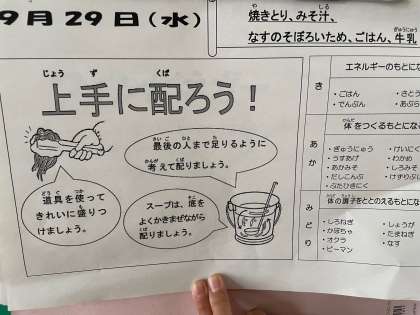 9月29日(水)
焼きとり、みそ汁、
なすのそぼろいため、ごはん、牛乳
上手に配ろう!
最後の人まで足りるように
考えて配りましょう。
道具を使って
きれいに盛りつ
けましょう。
スープは、底を
よくかきまぜながら
配りましょう。
エネルギーのもとにな
き
・ごはん
・でんぷん
・さとう
・あぶら
体をつくるもとにな
あか
・ぎゅうにゅう
・うすあげ
・あかみそ
・だしこんぶ
・ぶたひきにく
・けいにく
・わかめ
・しろみそ
・けずりぶし
体の調子をととのえるもとにな
みどり
・しろねぎ
・かぼちゃ
・オクラ
・ピーマン
・しょうが
・たまねぎ
・なす